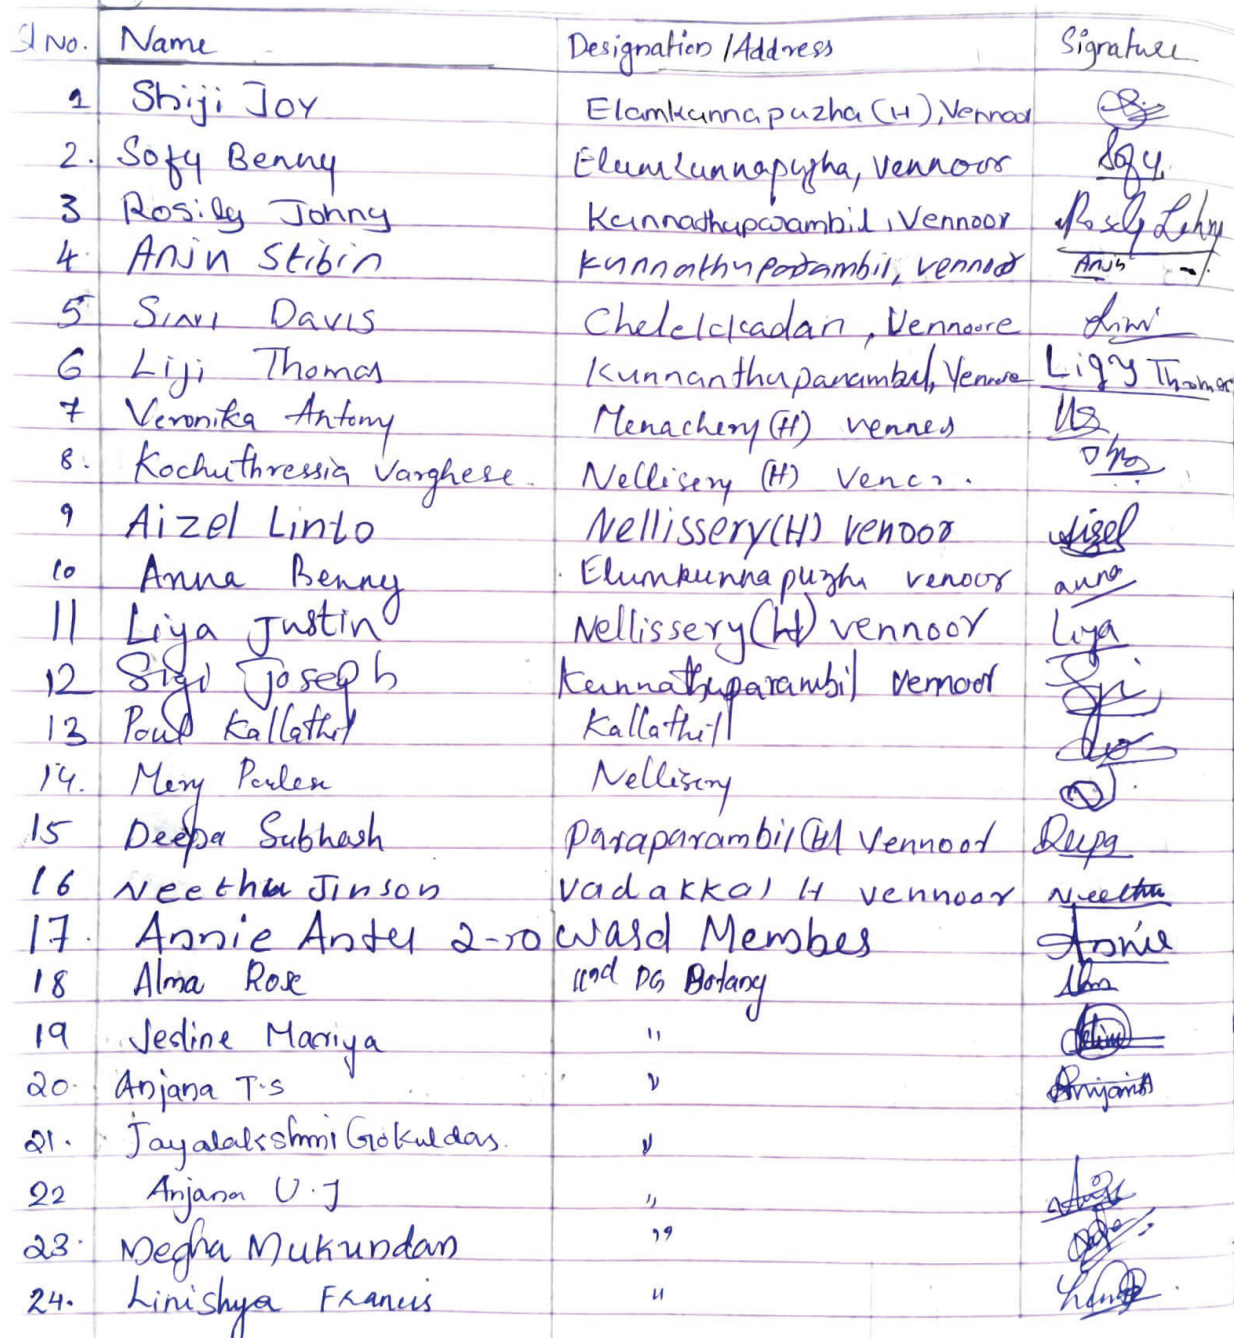 Sl No. Name Designation / Address Signature
1 Shiji Joy Elamkunnapuzha (H), Vennoor
2. Sofy Benny Elumkunnapuzha, Vennoor Sofy
3 Rosily Johny Kunnathuparambil, Vennoor Rosely Johny
4. Anin Stibin Kunnathuparambil, Vennoor Anin
5 Simi Davis Chelelckadan, Vennoore Simi
6 Liji Thomas Kunnanthuparambil, Vennore Ligy Thomas
7 Veronika Antony Menachery (H) vennes
8. Kochuthressia Varghese. Nellisery (H)
9 Aizel Linto Nellissery (H) Venoor Aizel
10 Anna Benny Elumkunnapuzha venoor anna
11 Liya Justin Nellissery (H) vennoor Liya
12 Sigi Joseph Kunnathuparambil Vennoor
13 Poul Kallathil Kallathill
14. Mery Poulese Nellisery
15 Deepa Subhash Paraparambil (H) Vennoor Deepa
16 Neethu Jinson Vadakkal H Vennoor Neethu
17. Annie Anto Ward Member Annie
18 Alma Rose IInd DG Botany Alma
19 Jestine Mariya "
20. Anjana T.S " Anjana
21. Jayalakshmi Gokuldas. "
22 Anjana U.J "
23. Megha Mukundan "
24. Linishya Francis "